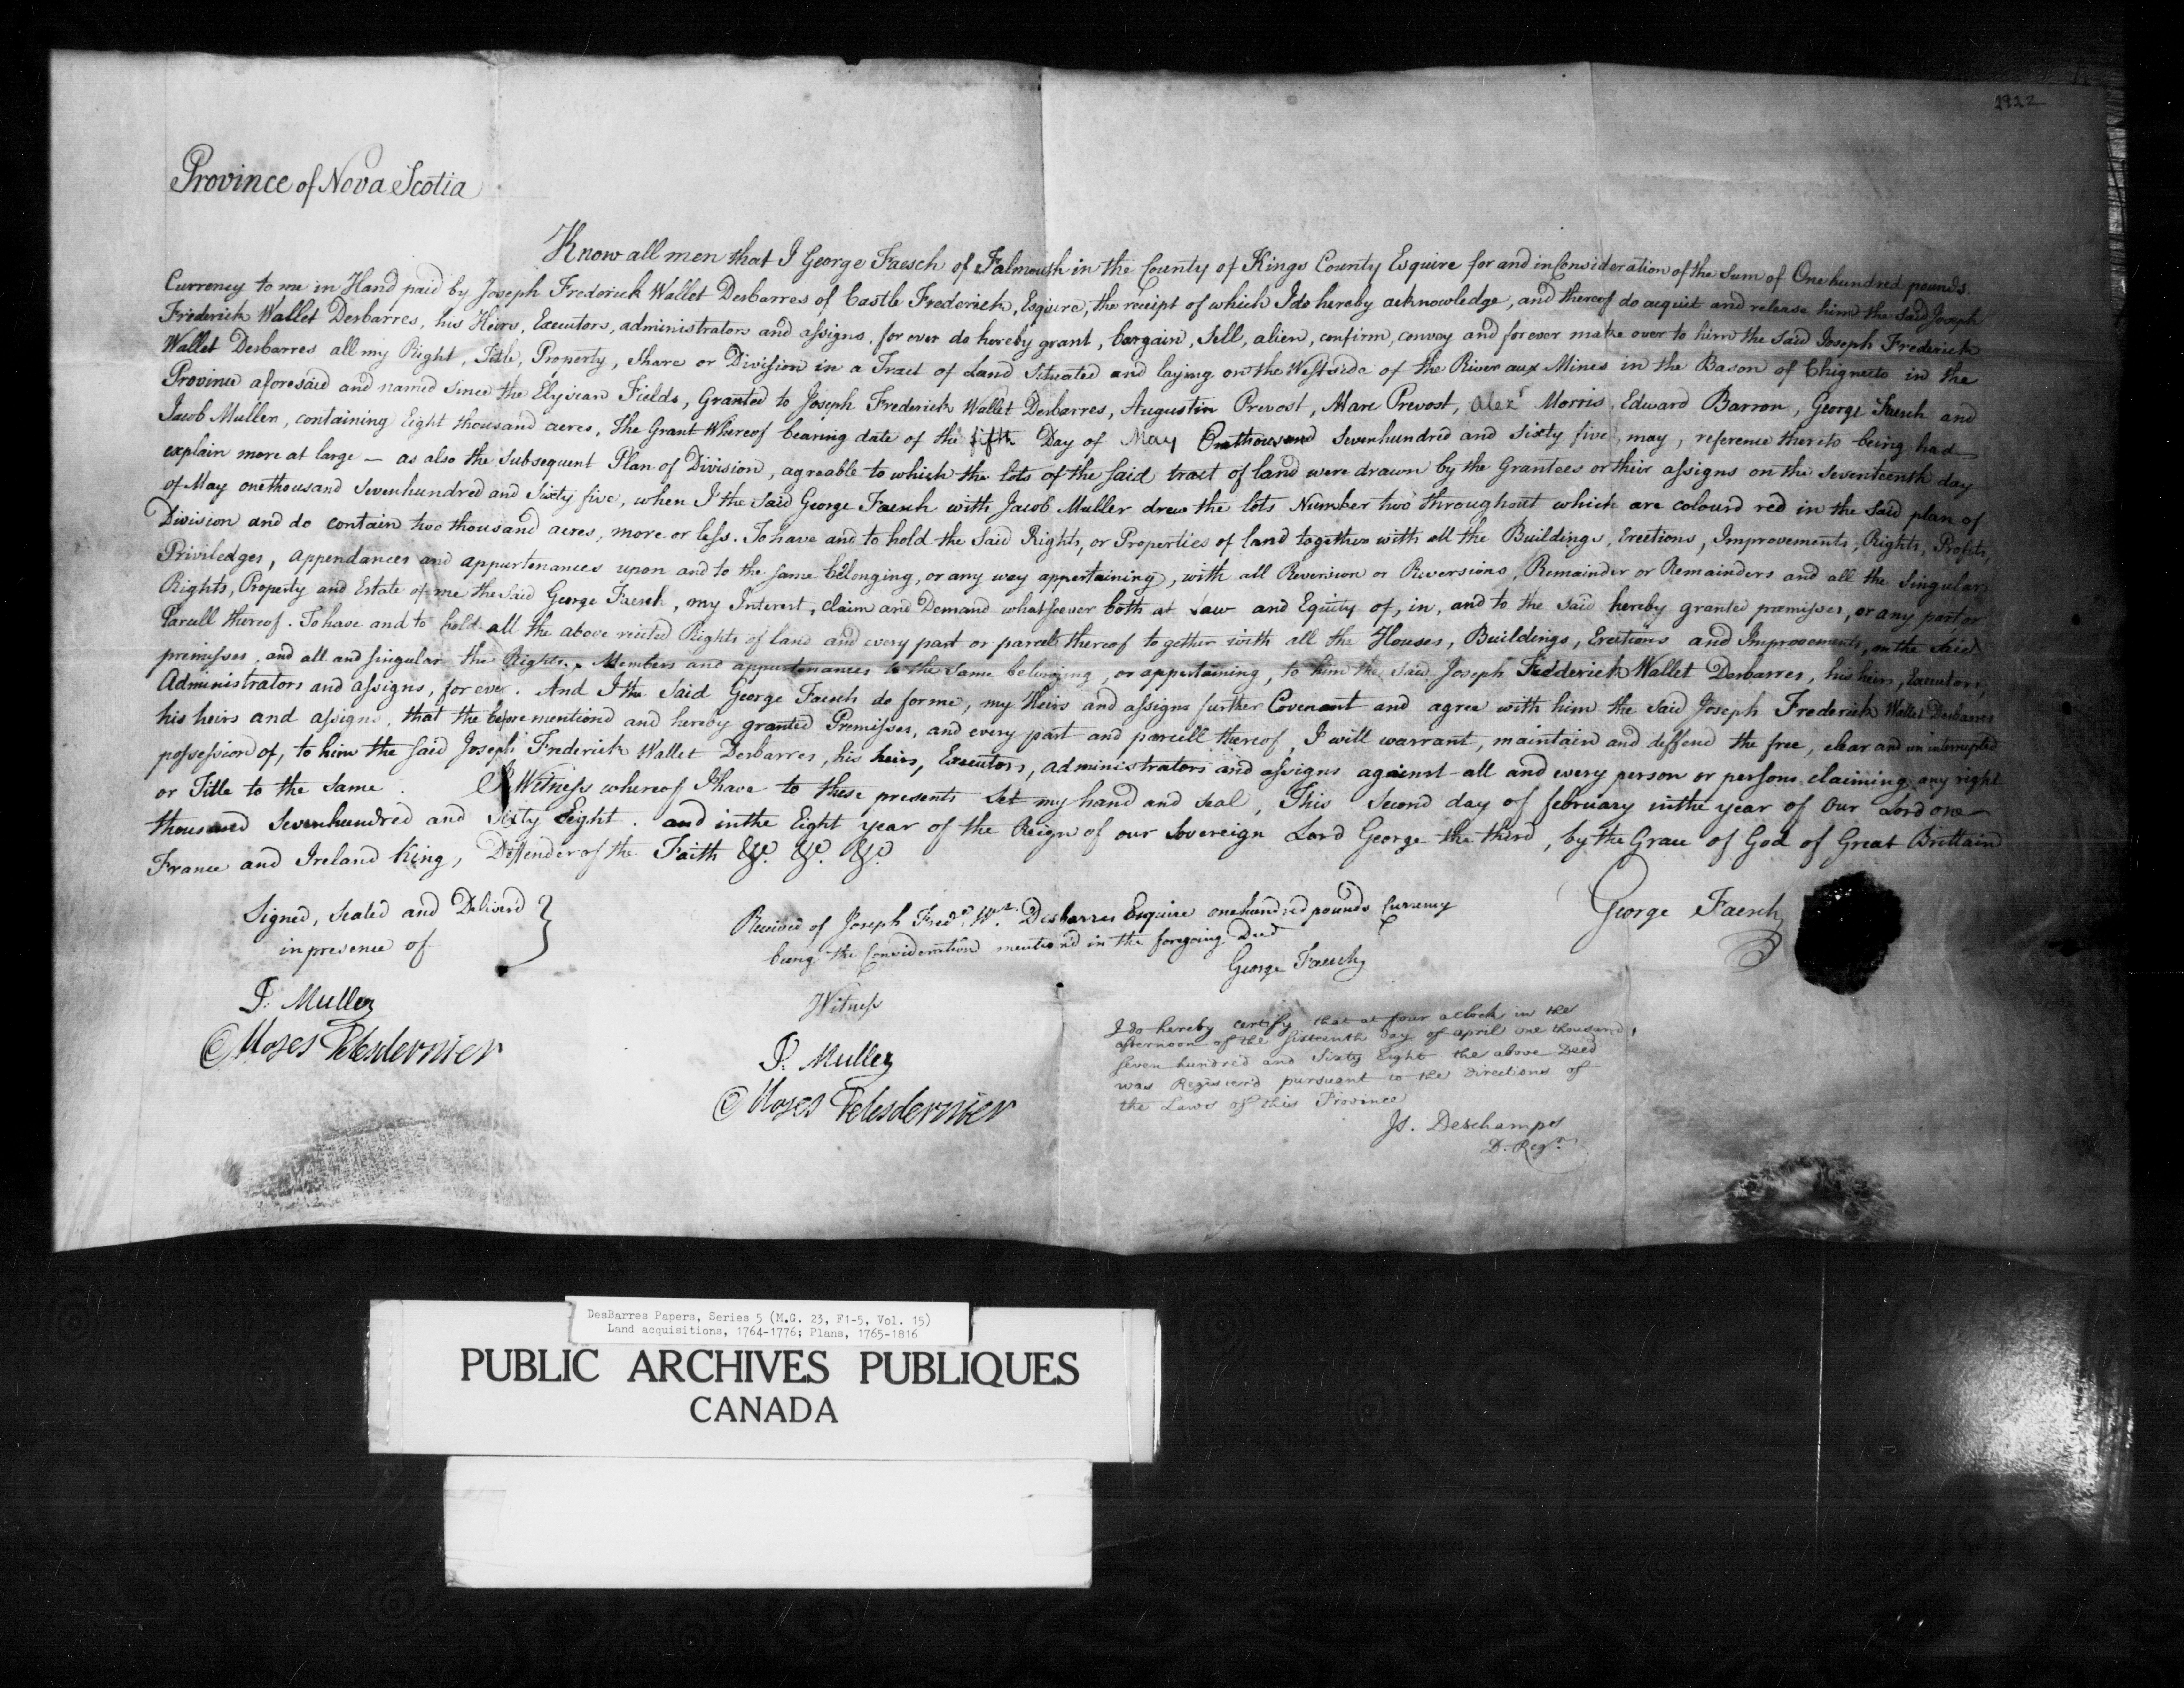 2922
Province of Nova Scotia
Know all men that I George Faesch of Falmouth in the County of Kings County Esquire for and in Consideration of the Sum of One hundred pounds.
Currency to me in Hand paid by Joseph Frederick Wallet Desbarres of Castle Frederick, Esquire, the receipt of which I do hereby acknowledge, and thereof do acquit and release him the said Joseph
Frederick Wallet Desbarres, his Heirs, Executors, administrators and assigns, for ever do hereby grant, bargain, Sell, alien, confirm, convey and forever make over to him the said Joseph Frederick
Wallet Desbarres all my Right, Title, Property, Share or Division in a Tract of Land Situated and laying on the Westside of the River aux Mines in the Bason of Chignecto in the
Province aforesaid and named since the Elysian Fields, Granted to Joseph Frederick Wallet Desbarres, Augustin Prevost, Marc Prevost, Alexr Morris, Edward Barron, George Faesch and
Jacob Muller, containing Eight thousand acres, The Grant Whereof bearing date of the fifth Day of May Onethousand Sevenhundred and Sixty five, may, reference thereto being had
explain more at large — as also the Subsequent Plan of Division, agreable to which the lots of the Said tract of land were drawn by the Grantees or their assigns on the Seventeenth day
of May onethousand Sevenhundred and Sixty five, when I the Said George Faesch with Jacob Muller drew the lots Number two throughout which are colourd red in the Said plan of
Division and do contain two thousand acres, more or less. To have and to hold the Said Rights, or Properties of land together with all the Buildings, Erections, Improvements, Rights, Profits,
Priviledges, appendances and appurtenances upon and to the same belonging, or any way appertaining, with all Reversion or Reversions, Remainder or Remainders and all the Singular
Rights, Property and Estate of me the Said George Faesch, my Interest, Claim and Demand whatsoever both at Law and Equity of, in, and to the Said hereby granted premisses, or any part or
Parcell thereof. To have and to hold all the above recited Rights of land and every part or parcell thereof together with all the Houses, Buildings, Erections and Improvements, on the Said
premisses, and all and singular the Rights, Members and appurtenances to the same belonging, or appertaining, to him the Said Joseph Fredderick Wallet Desbarres, his heirs, Executors,
Administrators and assigns, for ever. And I the Said George Faesch do for me, my Heirs and assigns further Covenant and agree with him the Said Joseph Frederick Wallet Desbarres
his heirs and assigns, that the before mentiond and hereby granted Premisses, and every part and parcell thereof, I will warrant, maintain and deffend the free, clear and un interrupted
possession of, to him the Said Joseph Frederick Wallet Desbarres, his heirs, Executors, administrators and assigns against all and every person or persons claiming any right
or Title to the Same. In Witness whereof I have to these presents Set my hand and Seal, This Second day of february in the year of Our Lord one
thousand Sevenhundred and Sixty Eight. and in the Eight year of the Reign of our Sovereign Lord George the third, by the Grace of God of Great Brittain
France and Ireland King, Deffender of the Faith &c. &c. &c.
Signed, Sealed and Deliverd
in presence of
J: Muller
Moses Delesdernier
Received of Joseph Fredk. Wt. Desbarres Esquire one hundred pounds Currency
being the Consideration mention'd in the foregoing Deed
George Faesch
Witness
J: Muller
Moses Delesdernier
George Faesch
I do hereby certify that at four o Clock in the
afternoon of the Sixteenth day of april one thousand,
Seven hundred and Sixty Eight the above Deed
was Register'd pursuant to the directions of
the Laws of this Province
Js. Deschamps
D. Regr.
DesBarres Papers, Series 5 (M.G. 23, F1-5, Vol. 15)
Land acquisitions, 1764-1776; Plans, 1765-1816
PUBLIC ARCHIVES PUBLIQUES
CANADA